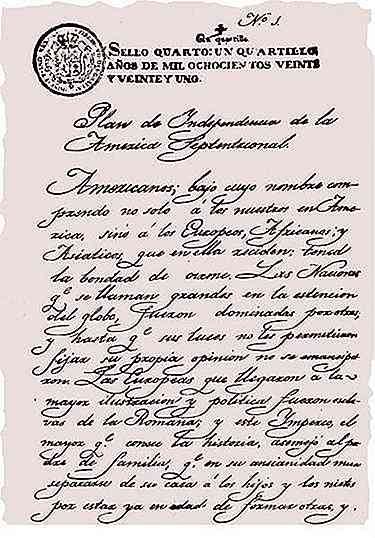 No. 1.
Un quartillo
SELLO QUARTO: UN QUARTILLO
AÑOS DE MIL OCHOCIENTOS VEINTE
Y VEINTE Y UNO.
Plan de Independencia de la
America Septentrional.
Americanos; bajo cuyo nombre com-
prendo no solo á los nuestros en Ame-
rica, sinó á los Europeos, Africanos; y
Asiaticos, que en ella residen: tened
la bondad de oirme. Las Naciones
q.e se llaman grandes en la estencion
del globo, fueron dominadas por otras;
y hasta q.e sus luces no les permitieron
fijar su propia opinion no se emancipa
ron. Las Europeas que llegaron á la
mayor ilustracion y politica fueron escla-
vas de la Romana; y este Imperio, el
mayor q.e conoce la historia, asemejó al pa-
dre de familias, q.e en su ansianidad mira
separarse de su casa á los hijos y los nietos
por estar ya en edad de formar otras, y